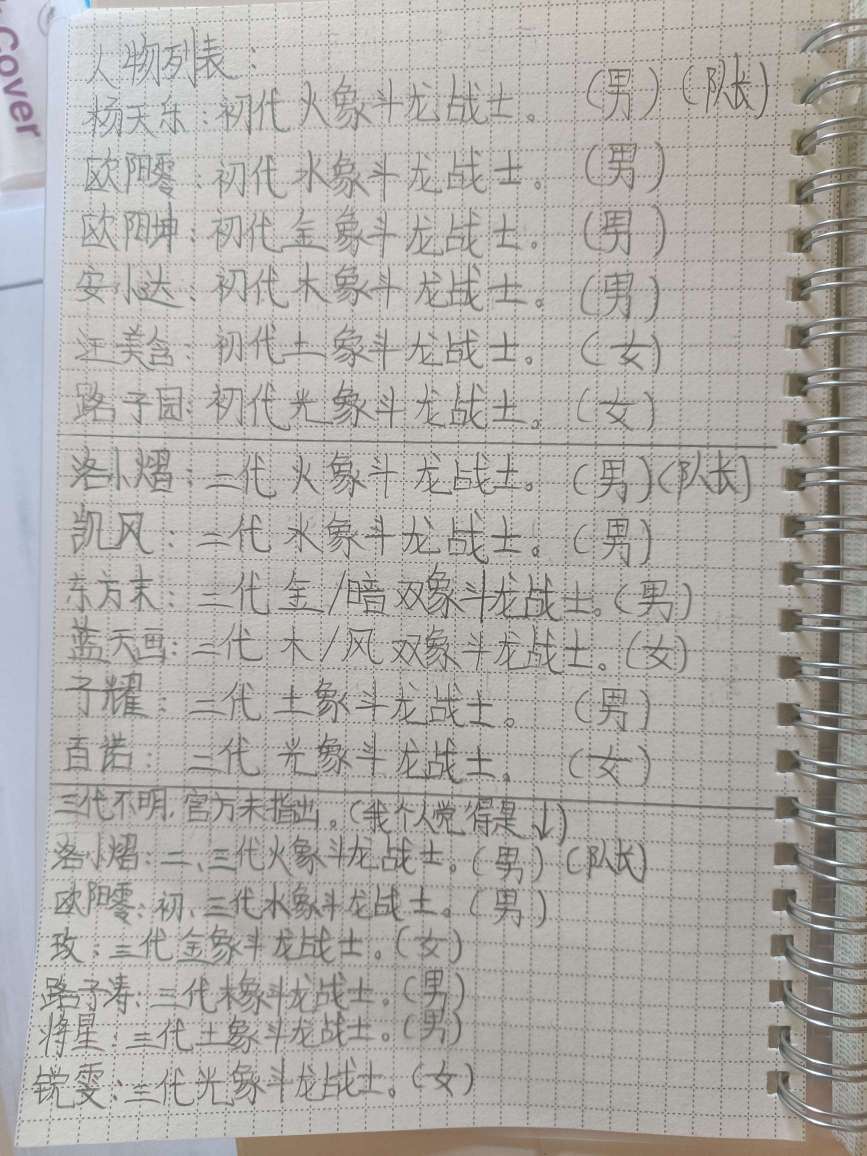 Cover
人物列表：
杨天乐：初代火象斗龙战士。（男）（队长）
欧阳零：初代水象斗龙战士。（男）
欧阳坤：初代金象斗龙战士。（男）
安小达：初代木象斗龙战士。（男）
汪美含：初代土象斗龙战士。（女）
路子园：初代光象斗龙战士。（女）
洛小熠：二代火象斗龙战士。（男）（队长）
凯风：二代水象斗龙战士。（男）
东方末：二代金/暗双象斗龙战士。（男）
蓝天画：二代木/风双象斗龙战士。（女）
子耀：二代土象斗龙战士。（男）
百诺：二代光象斗龙战士。（女）
三代不明，官方未指出。（我个人觉得是↓）
洛小熠：二、三代火象斗龙战士。（男）（队长）
欧阳零：初、三代水象斗龙战士。（男）
玫：三代金象斗龙战士。（女）
路子涛：三代木象斗龙战士。（男）
将星：三代土象斗龙战士。（男）
锐雯：三代光象斗龙战士。（女）